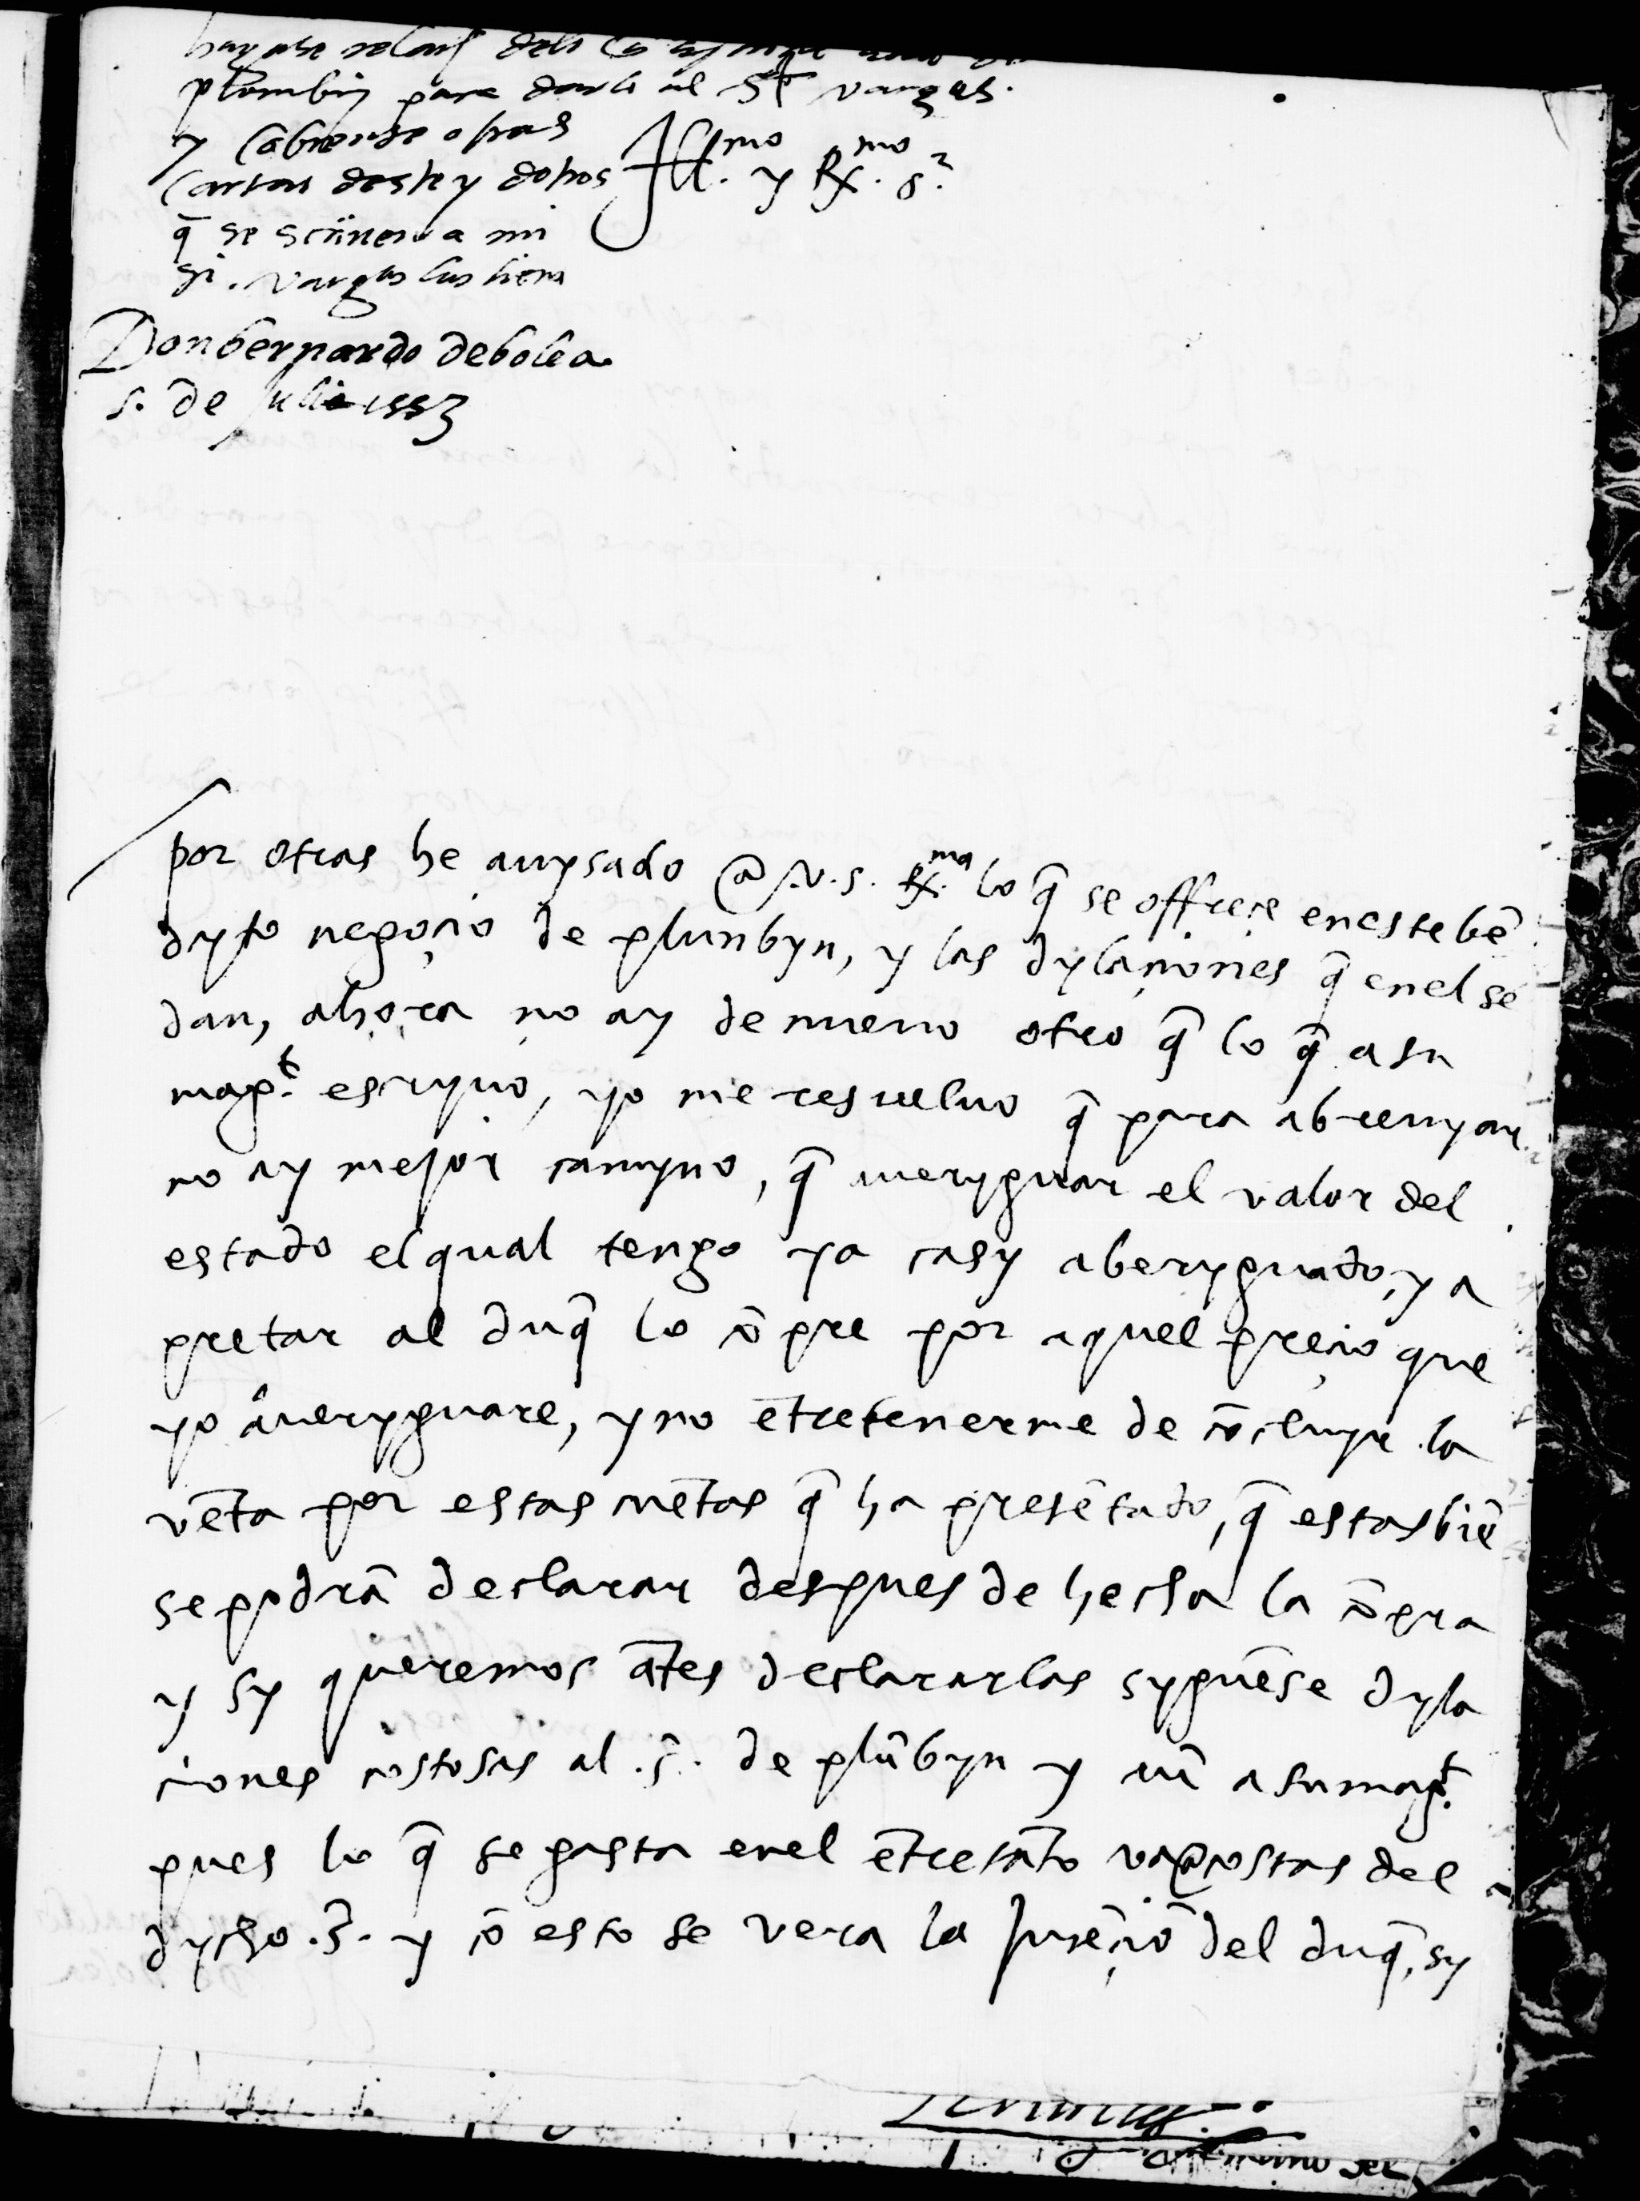 plombin para darlo al S.or vargas.
y cabrense otras
cartas deste y dotros
q̃ se scriuen a mi
si. vargas las tiene
Ill.mo y Rx.mo s.r
Don bernardo de bolea
5. de Julio 1553
por otras he auysado @ .v.s. Rx.ma lo q̃ se offreçe en este bẽ
dyto negoçio de plunbyn, y las dylaçiones q̃ en el se
dan, ahora no ay de nueuo otro q̃ lo q̃ a su
mag.t escryuo, yo me resueluo q̃ para abreuyar
no ay mejor camyno, q̃ aueryguar el valor del
estado el qual tengo ya casy aberyguado, y a
pretar al duq̃ lo cõpre por aquel preçio que
yo aueryguare, y no ẽtretenerme de cõcluyr la
vẽta por estas cuẽtas q̃ ha presẽtado, q̃ estas biẽ
se podrã declarar despues de hecha la cõpra
y sy queremos ãtes declararlas syguẽse dyla
ciones costosas al .s.r de plũbyn y aũ a su mag.t
pues lo q̃ se gasta en el ẽtretãto va @ costas del
dycho .s.r y cõ esto se vera la Jntẽçiõ del duq̃, sy